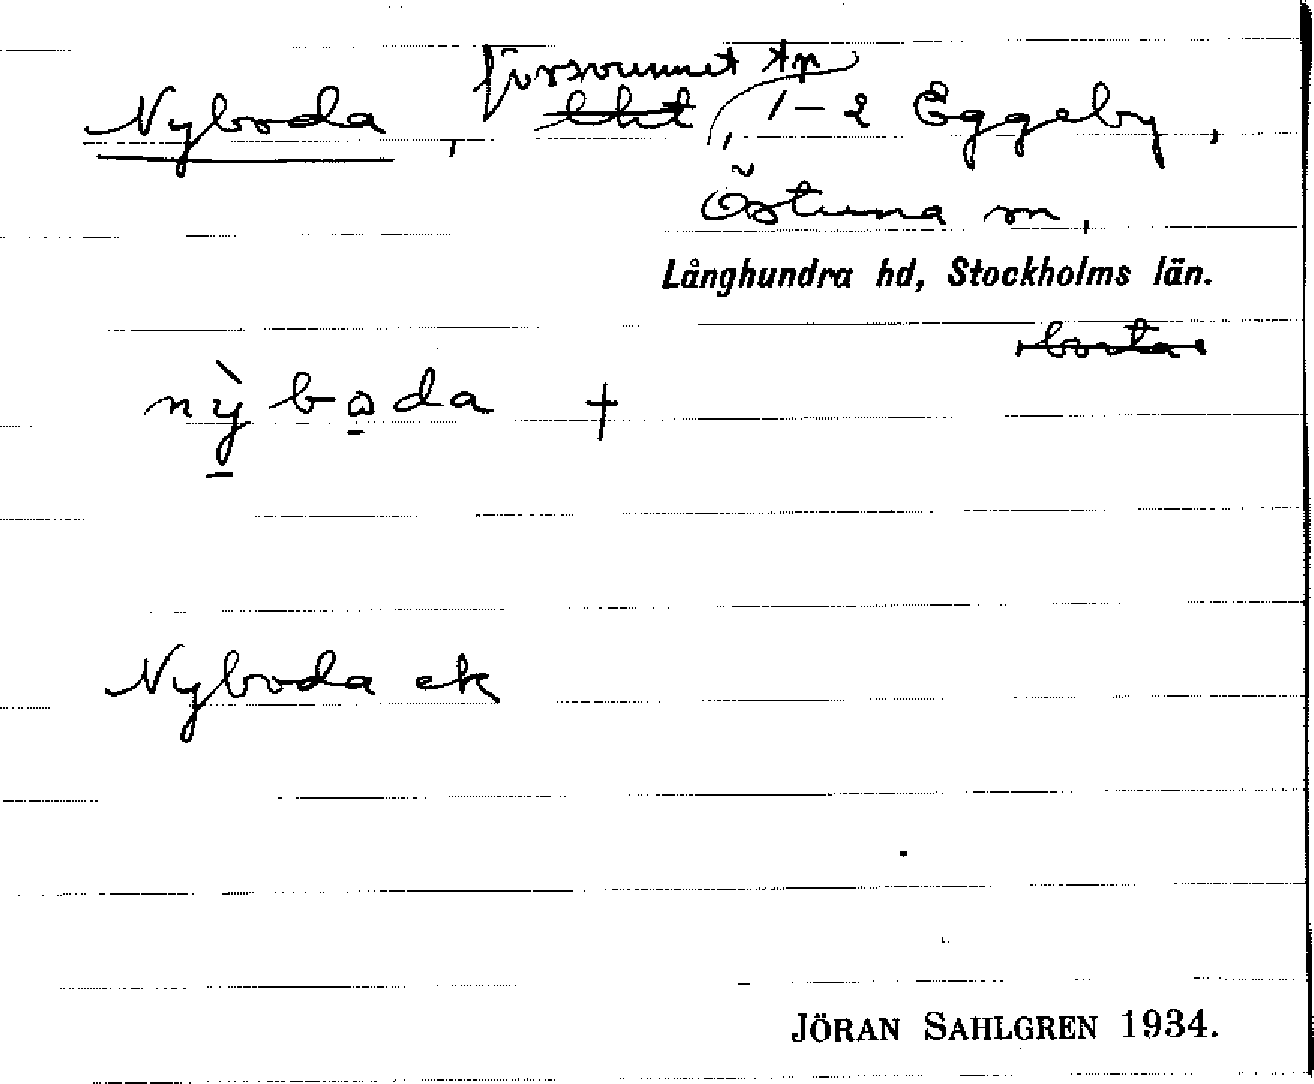 försvunnet tp
Nyboda, lht, 1–2 Eggeby,
Östuna sn,
Långhundra hd, Stockholms län.
borta
nỳboda †
Nyboda ek
JÖRAN SAHLGREN 1934.